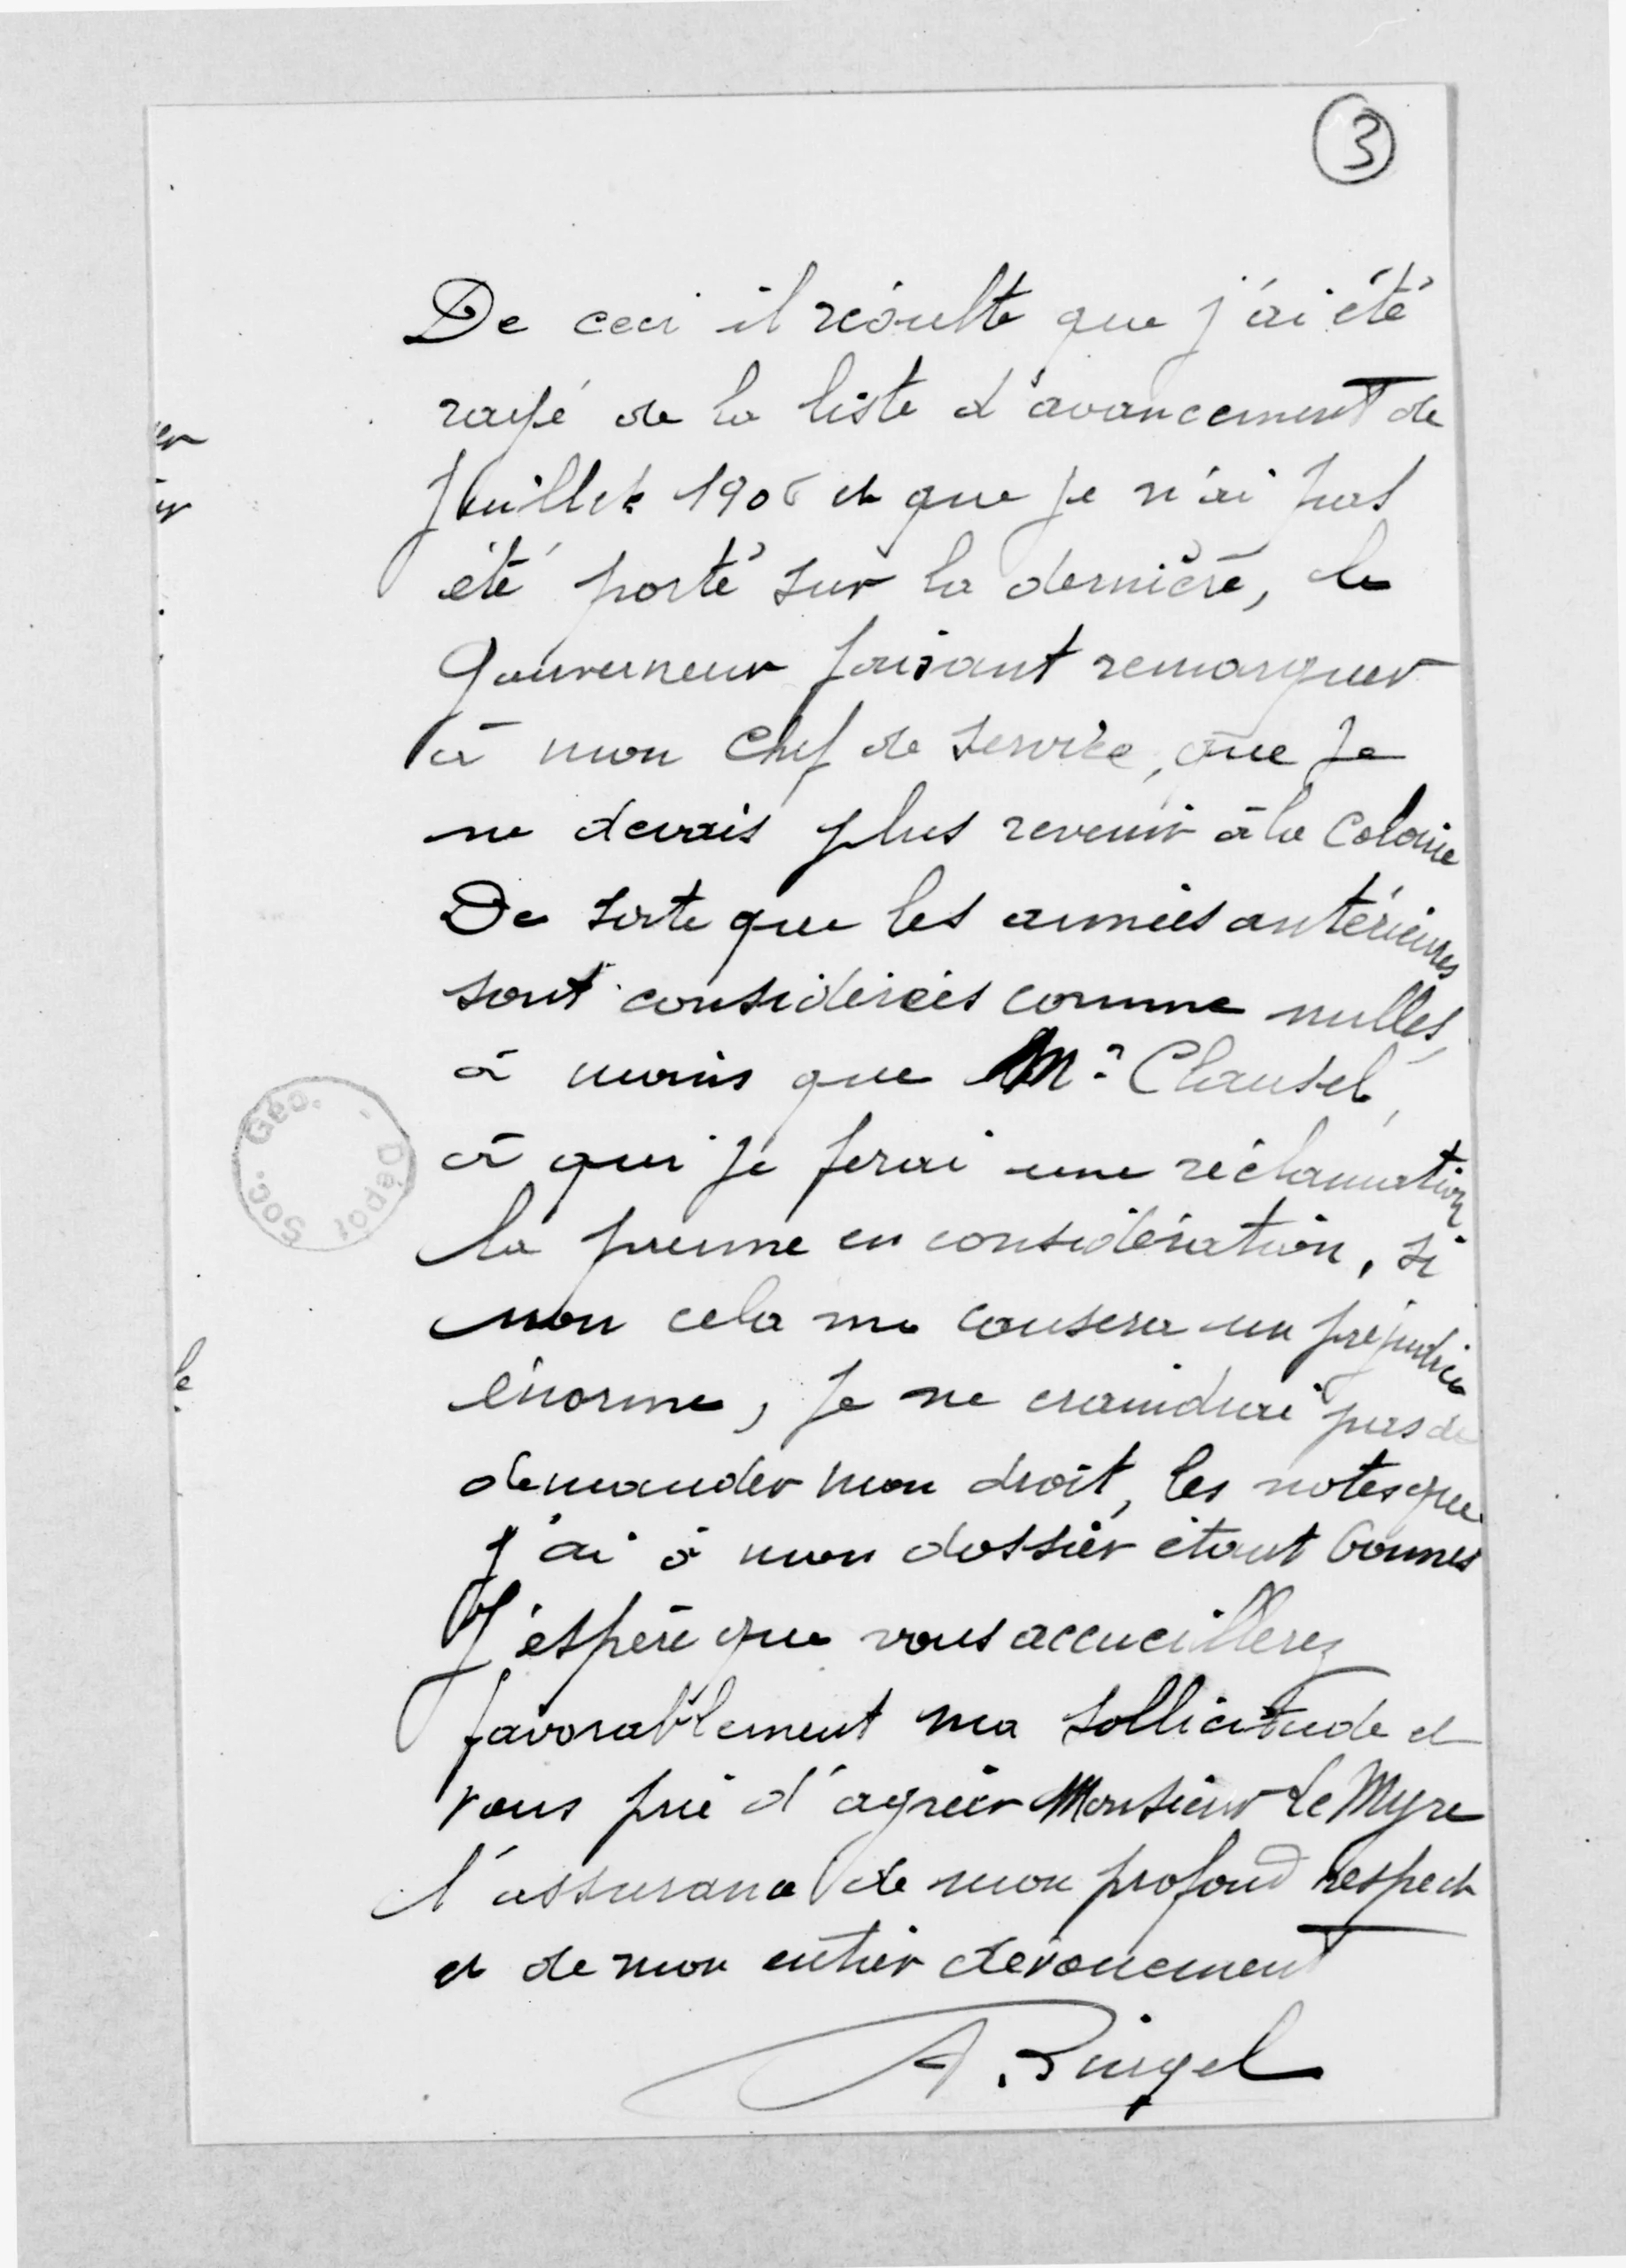 3
De ceci il résulte que j'ai été
rayé de la liste d'avancement de
Juillet 1906 et que je n'ai pas
été porté sur la dernière, le
Gouverneur faisant remarquer
à mon Chef de Service, que je
ne devais plus revenir à la Colonie
De sorte que les années antérieures
sont considérées comme nulles,
à moins que Mr Clausel,
à qui je ferai une réclamation
la prenne en considération, si
non cela me causera un préjudice
énorme, je ne craindrai pas de
demander mon droit, les notes que
j'ai à mon dossier étant bonnes
J'espère que vous accueillerez
favorablement ma sollicitude et
vous prie d'agréer Monsieur Le Myre
l'assurance de mon profond respect
et de mon entier dévouement
Soc. Géo. - Dépot